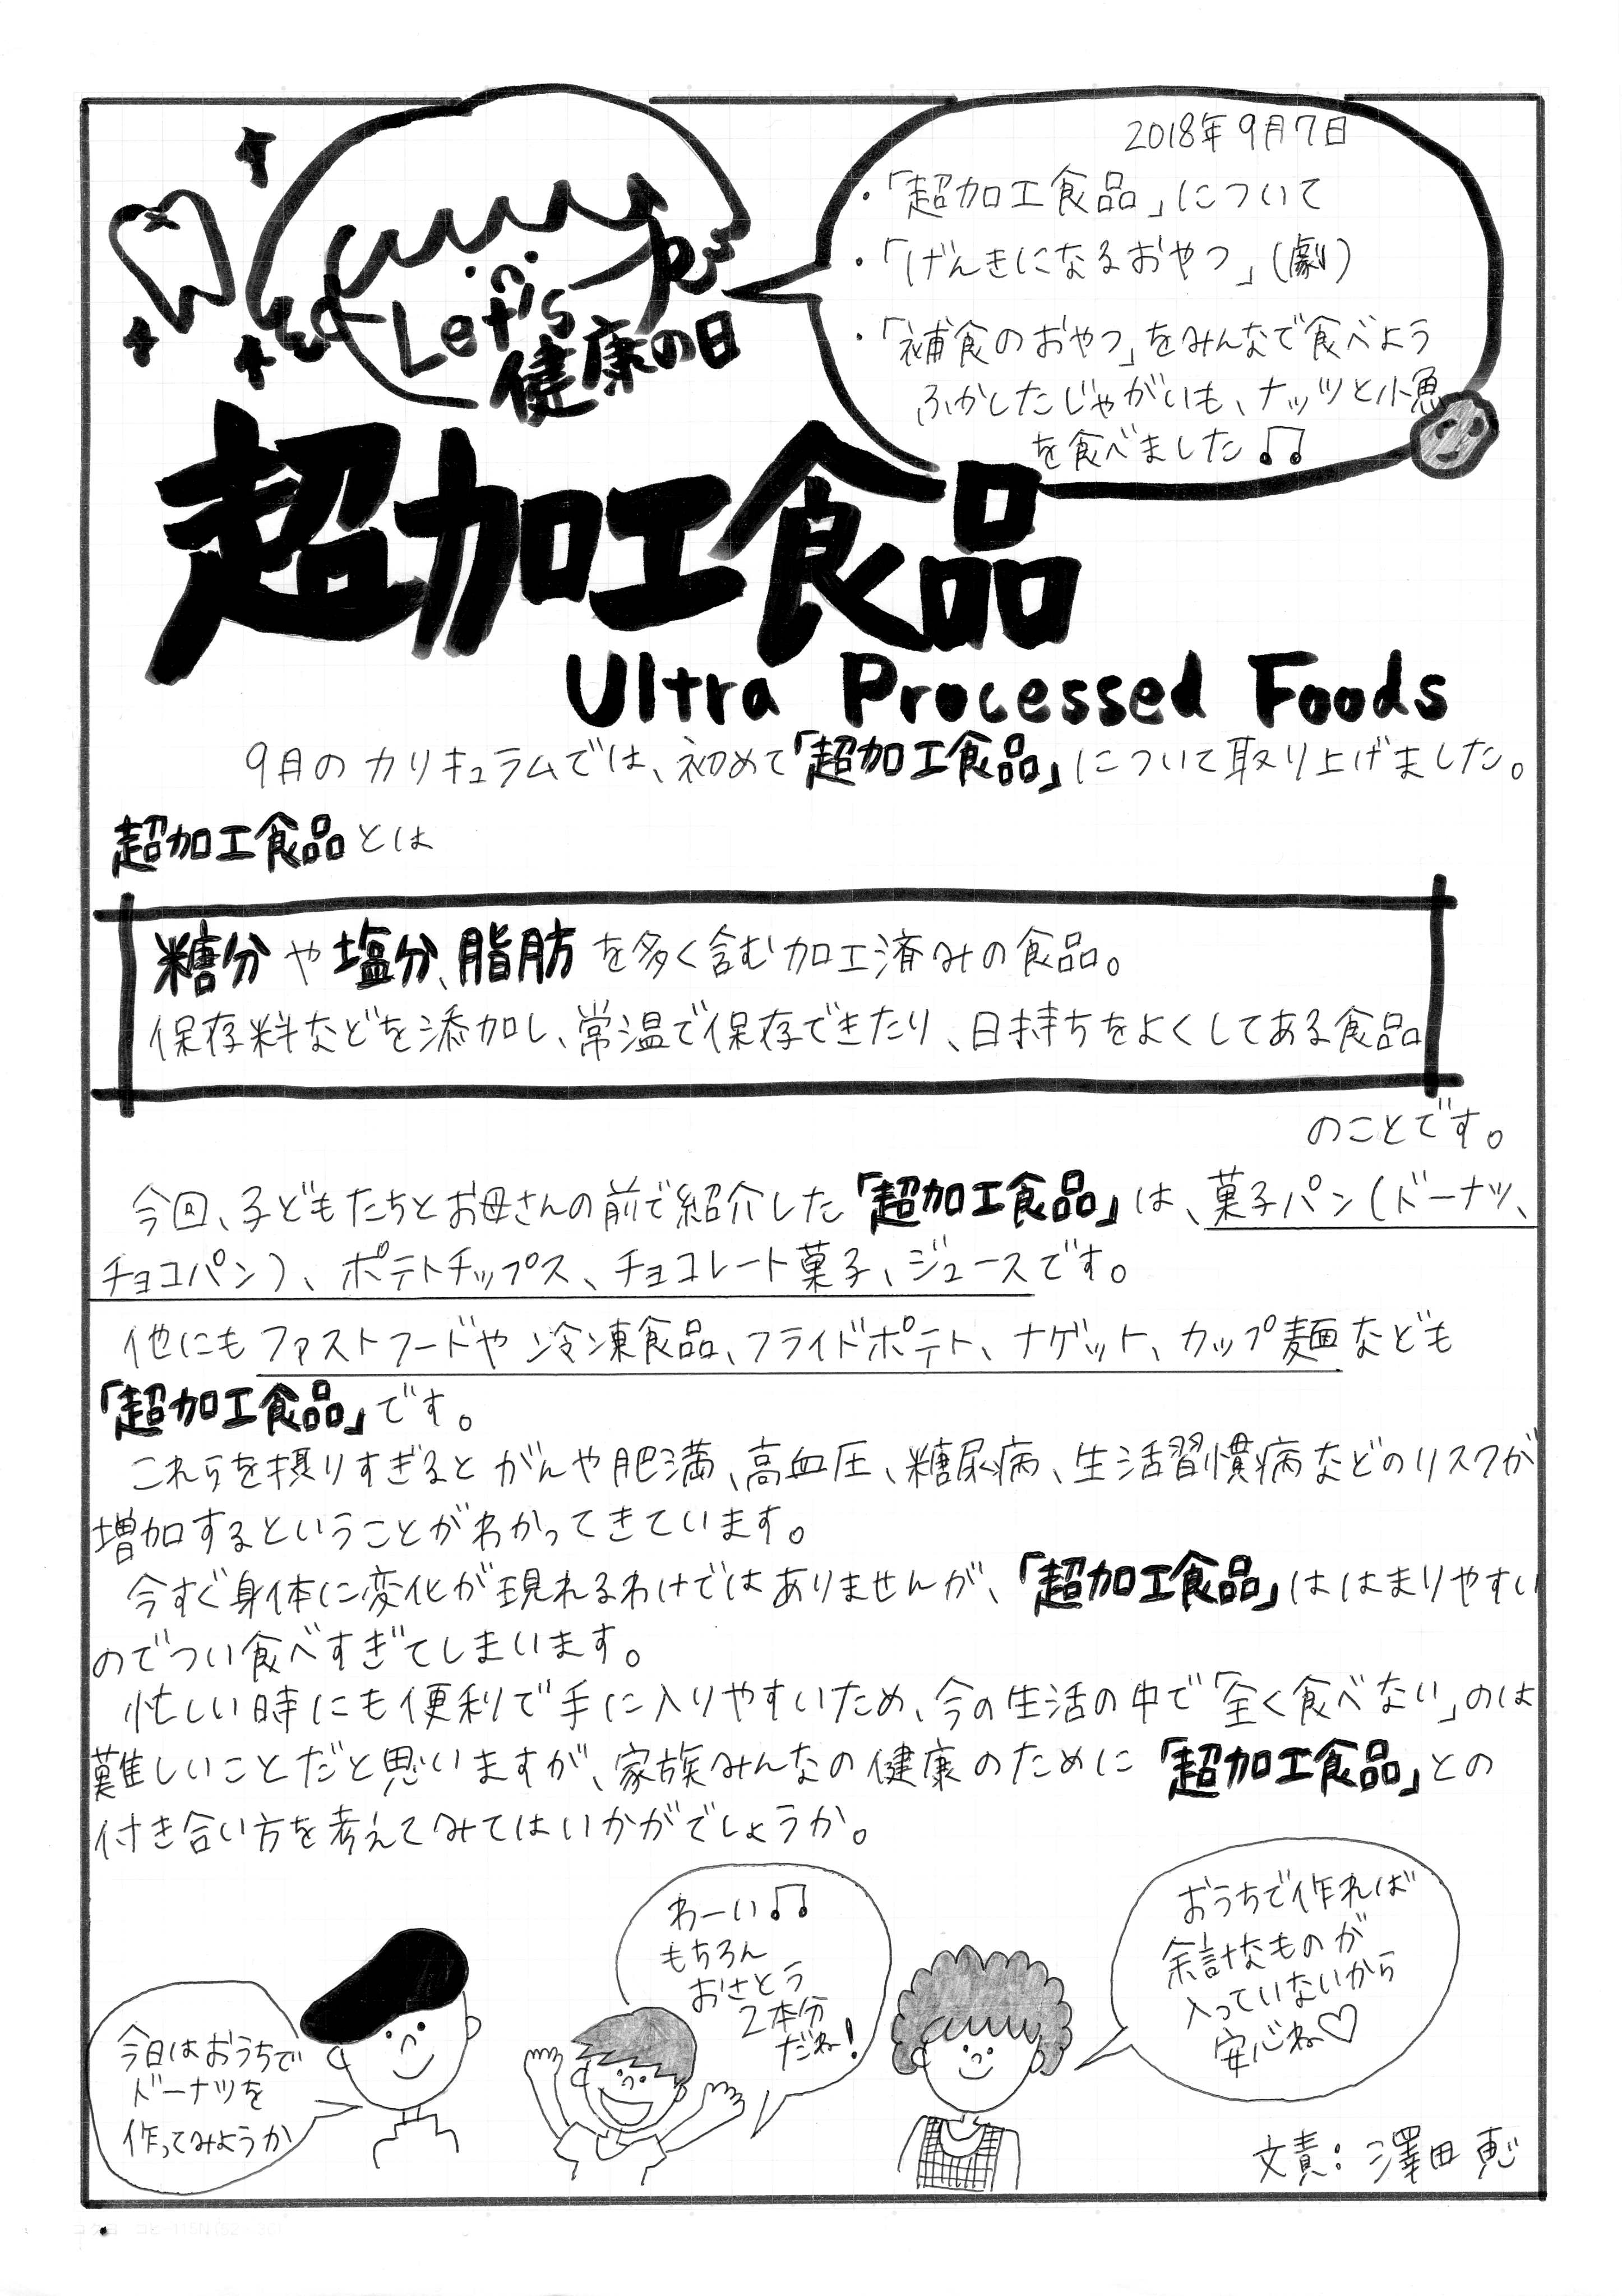 Let's
健康の日
2018年9月7日
・「超加工食品」について
・「げんきになるおやつ」(劇)
・「補食のおやつ」をみんなで食べよう
ふかしたじゃがいも、ナッツと小魚
を食べました♫
超加工食品
Ultra Processed Foods
9月のカリキュラムでは、初めて「超加工食品」について取り上げました。
超加工食品とは
糖分や塩分、脂肪を多く含む加工済みの食品。
保存料などを添加し、常温で保存できたり、日持ちをよくしてある食品
のことです。
今回、子どもたちとお母さんの前で紹介した「超加工食品」は、菓子パン(ドーナツ、
チョコパン)、ポテトチップス、チョコレート菓子、ジュースです。
他にもファストフードや冷凍食品、フライドポテト、ナゲット、カップ麺なども
「超加工食品」です。
これらを摂りすぎるとがんや肥満、高血圧、糖尿病、生活習慣病などのリスクが
増加するということがわかってきています。
今すぐ身体に変化が現れるわけではありませんが、「超加工食品」ははまりやすい
のでつい食べすぎてしまいます。
忙しい時にも便利で手に入りやすいため、今の生活の中で「全く食べない」のは
難しいことだと思いますが、家族みんなの健康のために「超加工食品」との
付き合い方を考えてみてはいかがでしょうか。
今日はおうちで
ドーナツを
作ってみようか
わーい♫
もちろん
おさとう
2本分
だね!
おうちで作れば
余計なものが
入っていないから
安心ね♡
文責:澤田 恵